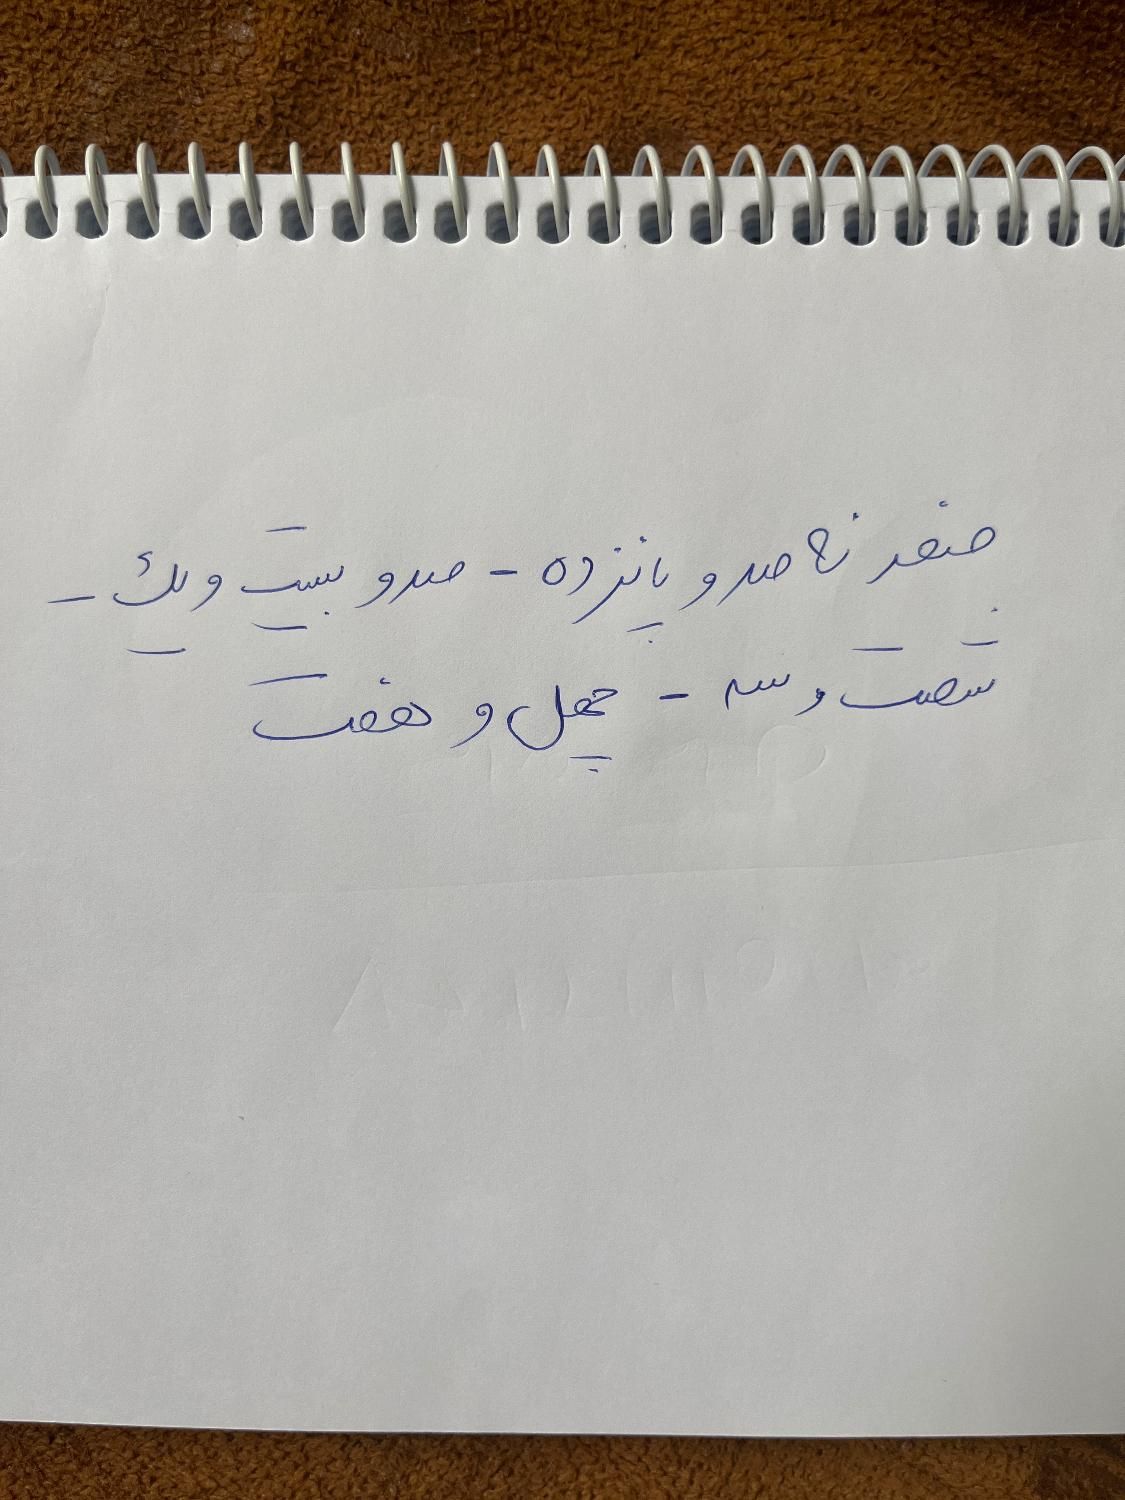 صفر نهصد و پانزده - صد و بیست و یک -
شصت و سه - چهل و هفت